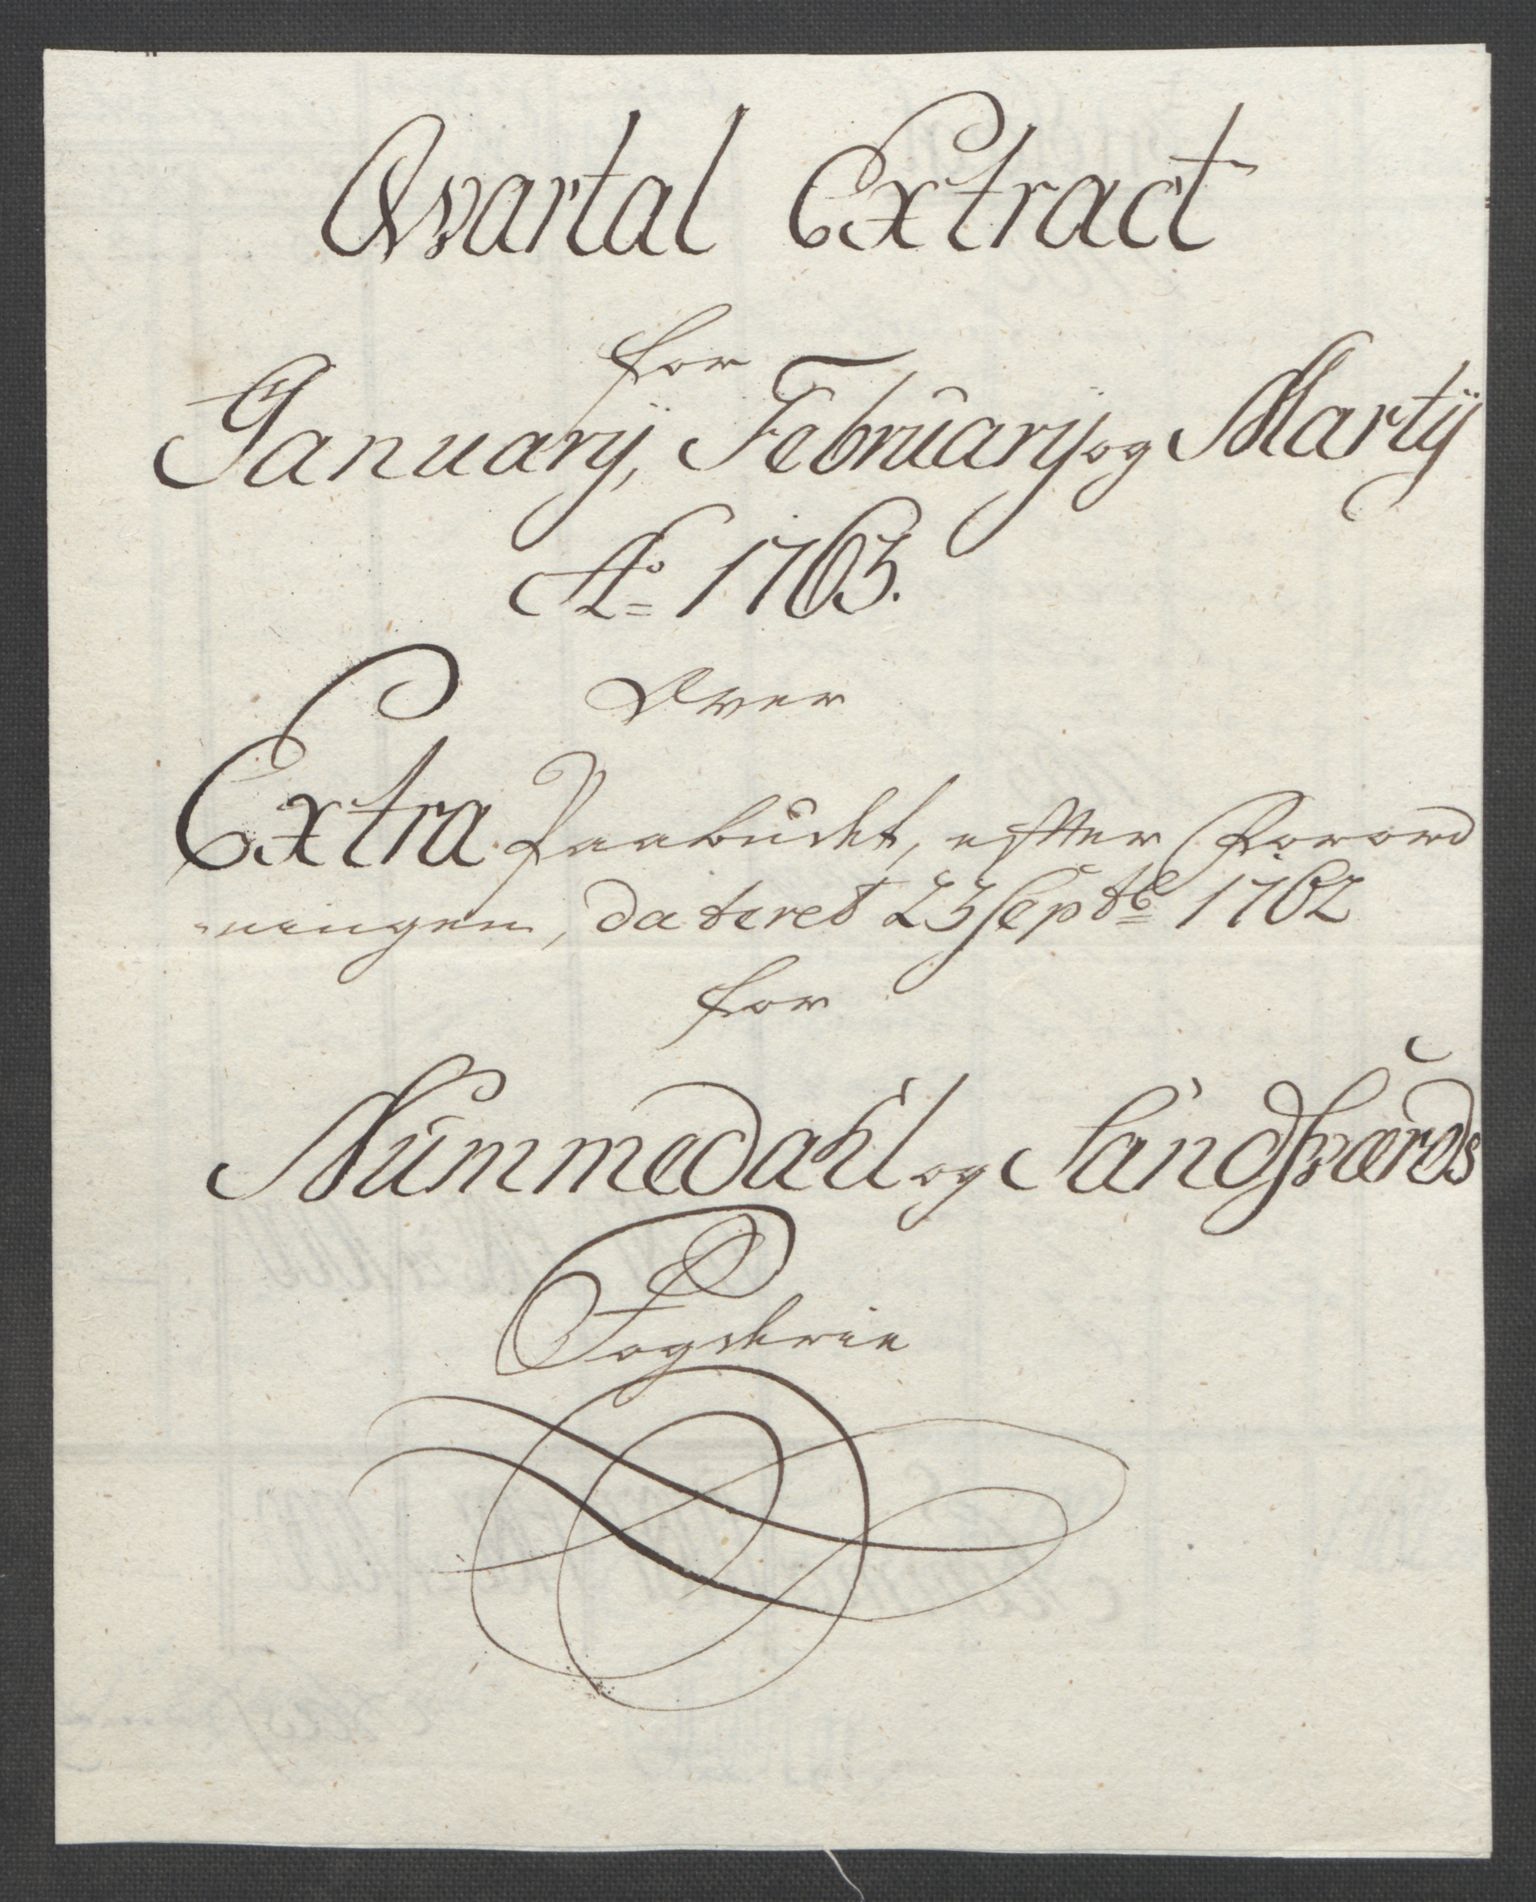 Qvartal Extract
for
Januarÿ, Februarÿ og Martÿ
Aº 1763.
Over
Extra Paabudet, efter Forord
ningen, dateret 23 Septbr 1762
for
Nummedahl og Sandsværds
Fogderie